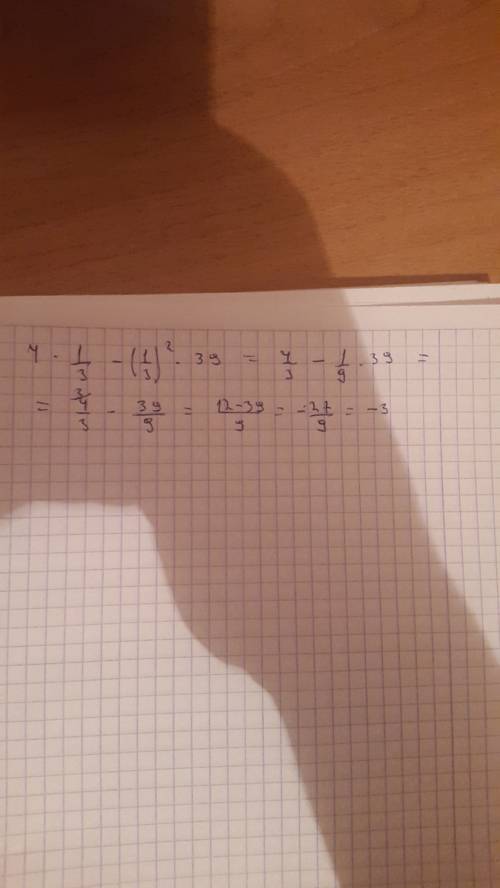 4 · 1/3 - (1/3)² · 39 = 4/3 - 1/9 · 39 =
= 4/3 ³ - 39/9 = 12-39/9 = -27/9 = -3